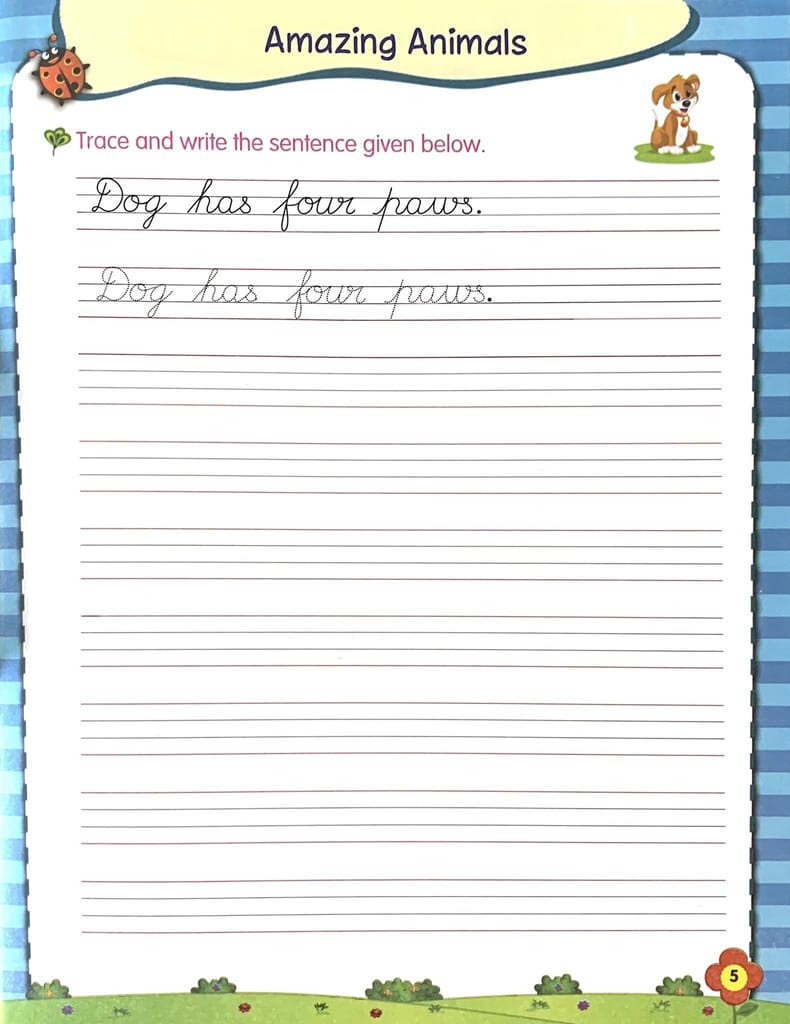 Amazing Animals
Trace and write the sentence given below.
Dog has four paws.
Dog has four paws.
5